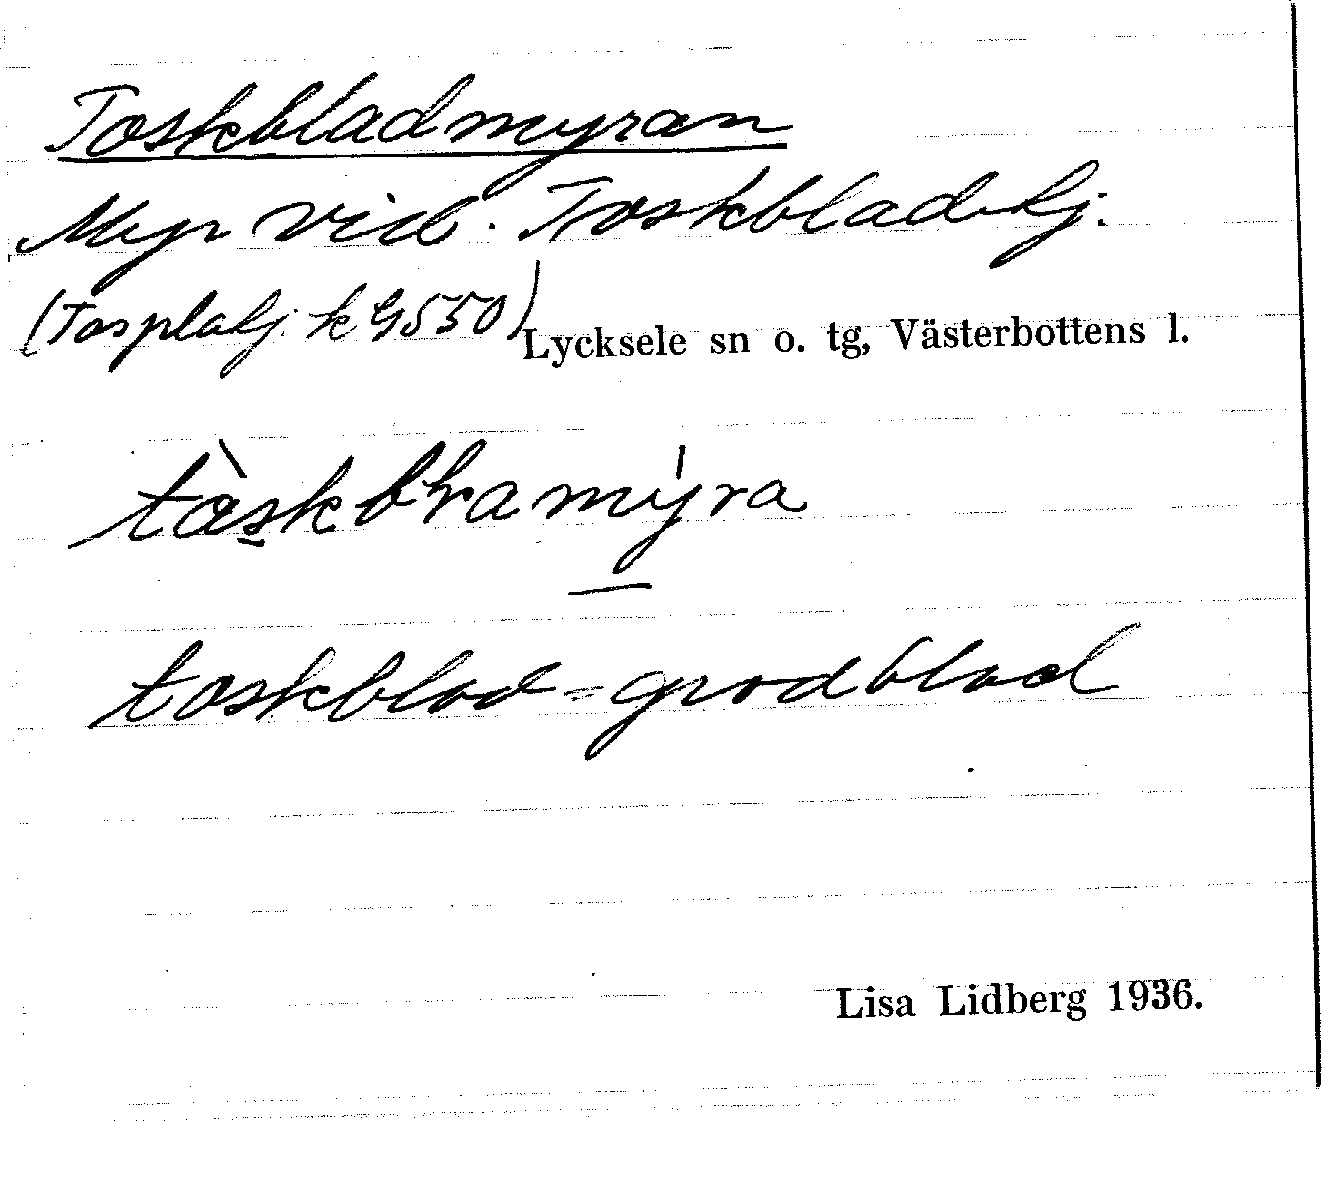 Toskbladmyran
Myr vid. Toskbladtj.
(Tosplatj. k G550)
Lycksele sn o. tg, Västerbottens l.
toskblad = grodblad
Lisa Lidberg 1936.